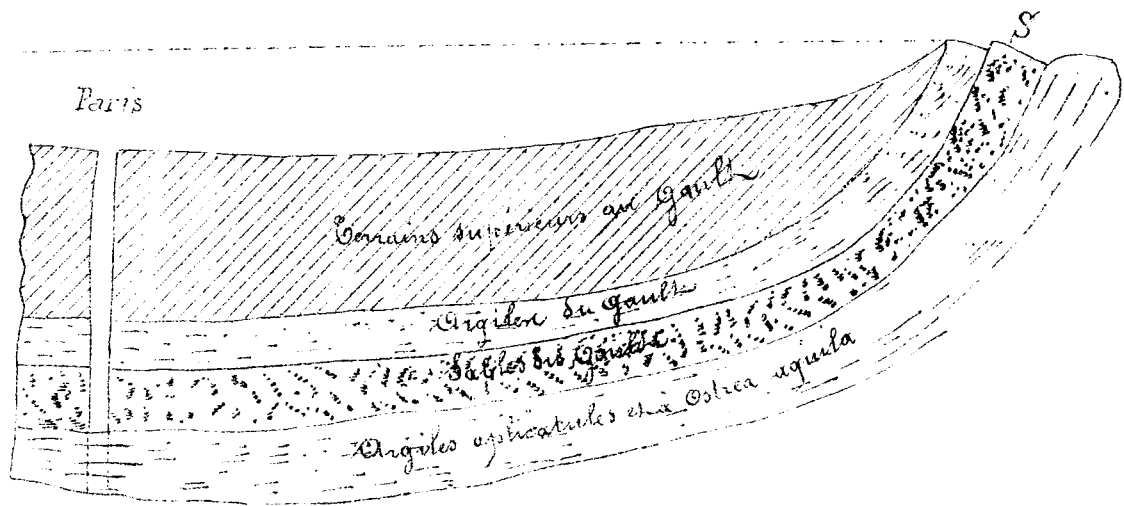 S
Paris
Terrains supérieurs au Gault
Argiles du Gault
Sables du Gault
Argiles à plicatules et à Ostrea aquila